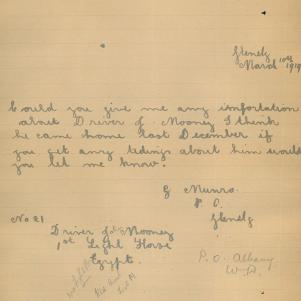 Glenelg
March 10th 1919
Could you give me any imfortation
about Driver J. Mooney I think
he came home last December if
you get any tidings about him would
you let me know.
G Munro.
P. O.
Glenelg
No. 21
Driver J. Mooney
1st Light Horse
Egypt.
P. O. Albany
W. A.